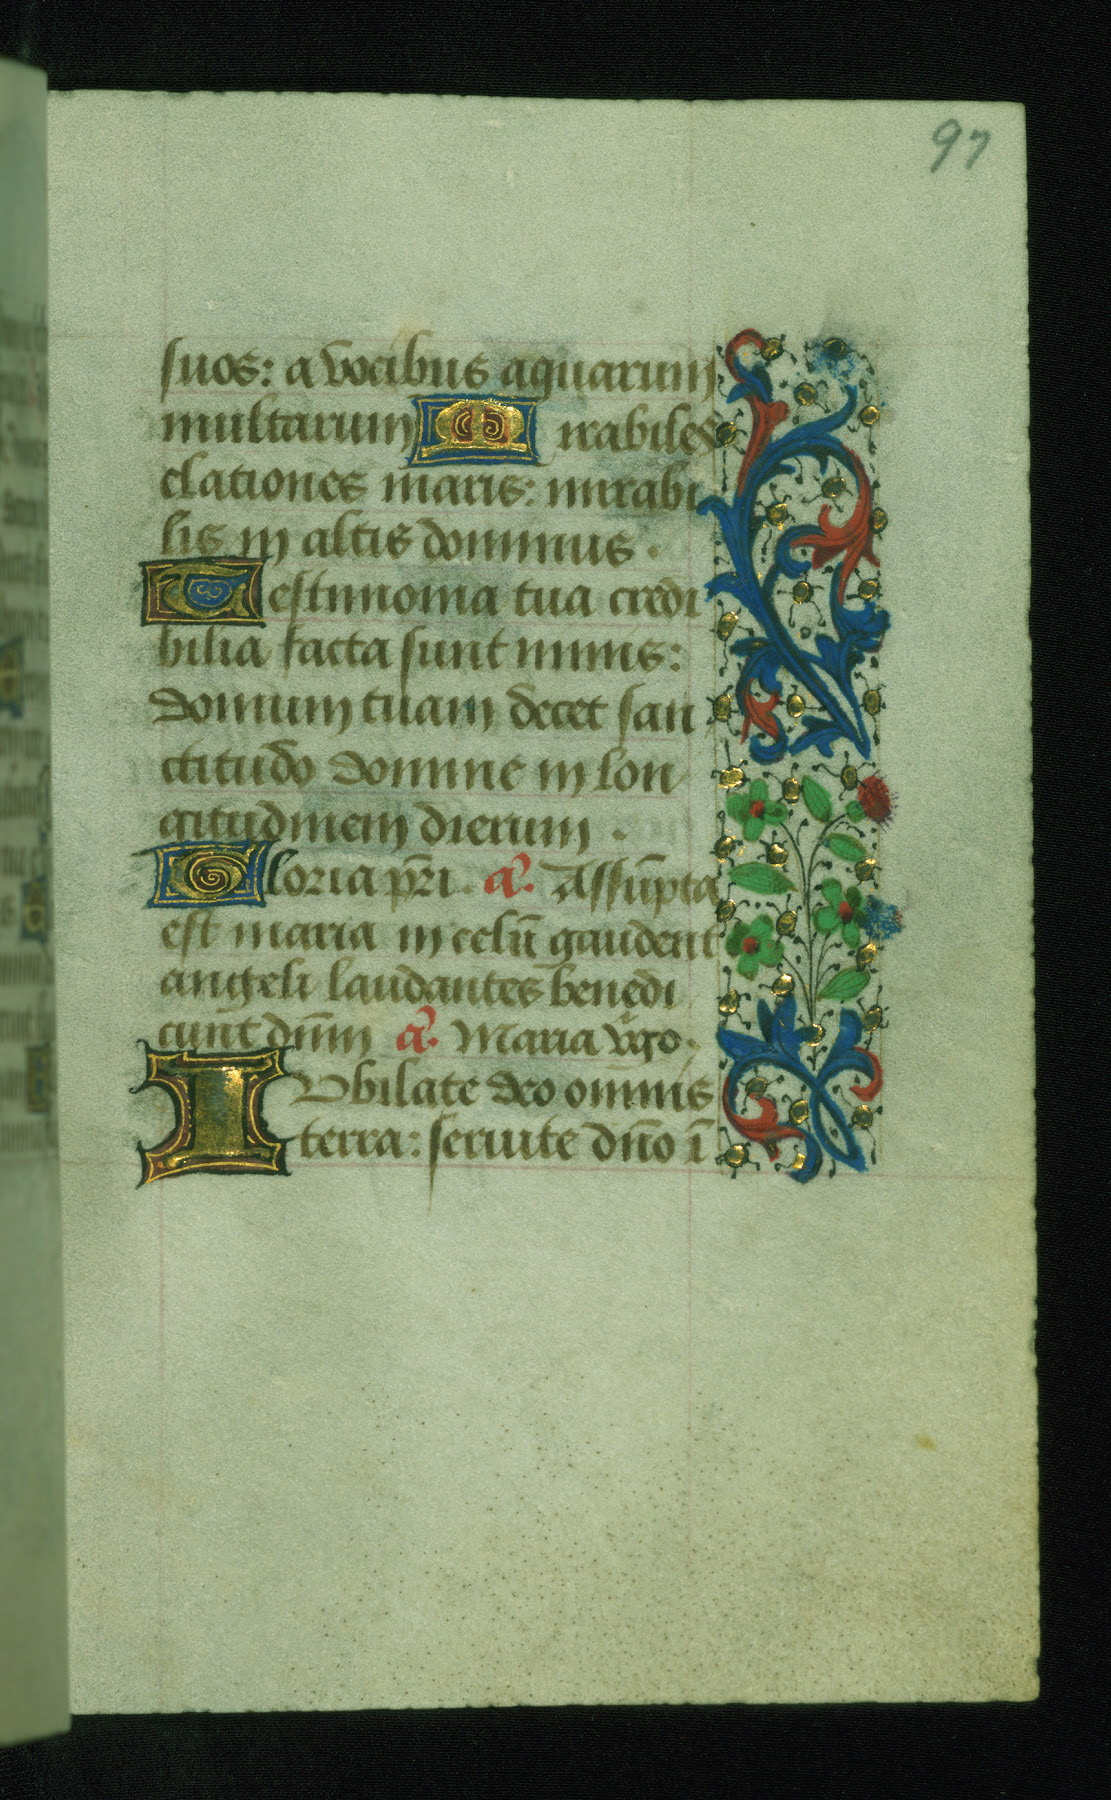 97
suos: a vocibus aquarum
multarum Mirabiles
elationes maris: mirabi
lis in altis dominus.
Testimonia tua credi
bilia facta sunt nimis:
domum tuam decet san
ctitudo domine in lon
gitudinem dierum.
Gloria pr̃i. a̾. Assũpta
est maria in celũ gaudent
angeli laudantes benedi
cunt dñm a̾. Maria v̾go.
IVbilate deo omnis
terra: seruite dño ĩ